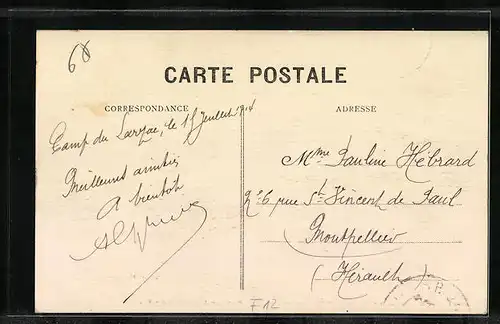 68
CARTE POSTALE
CORRESPONDANCE
ADRESSE
Camp du Larzac, le 15 Juillet 1914
Meilleures amitiés
A bientôt
Mme Pauline Hébrard
rue St Vincent de Paul
Montpellier
(Hérault)
F12